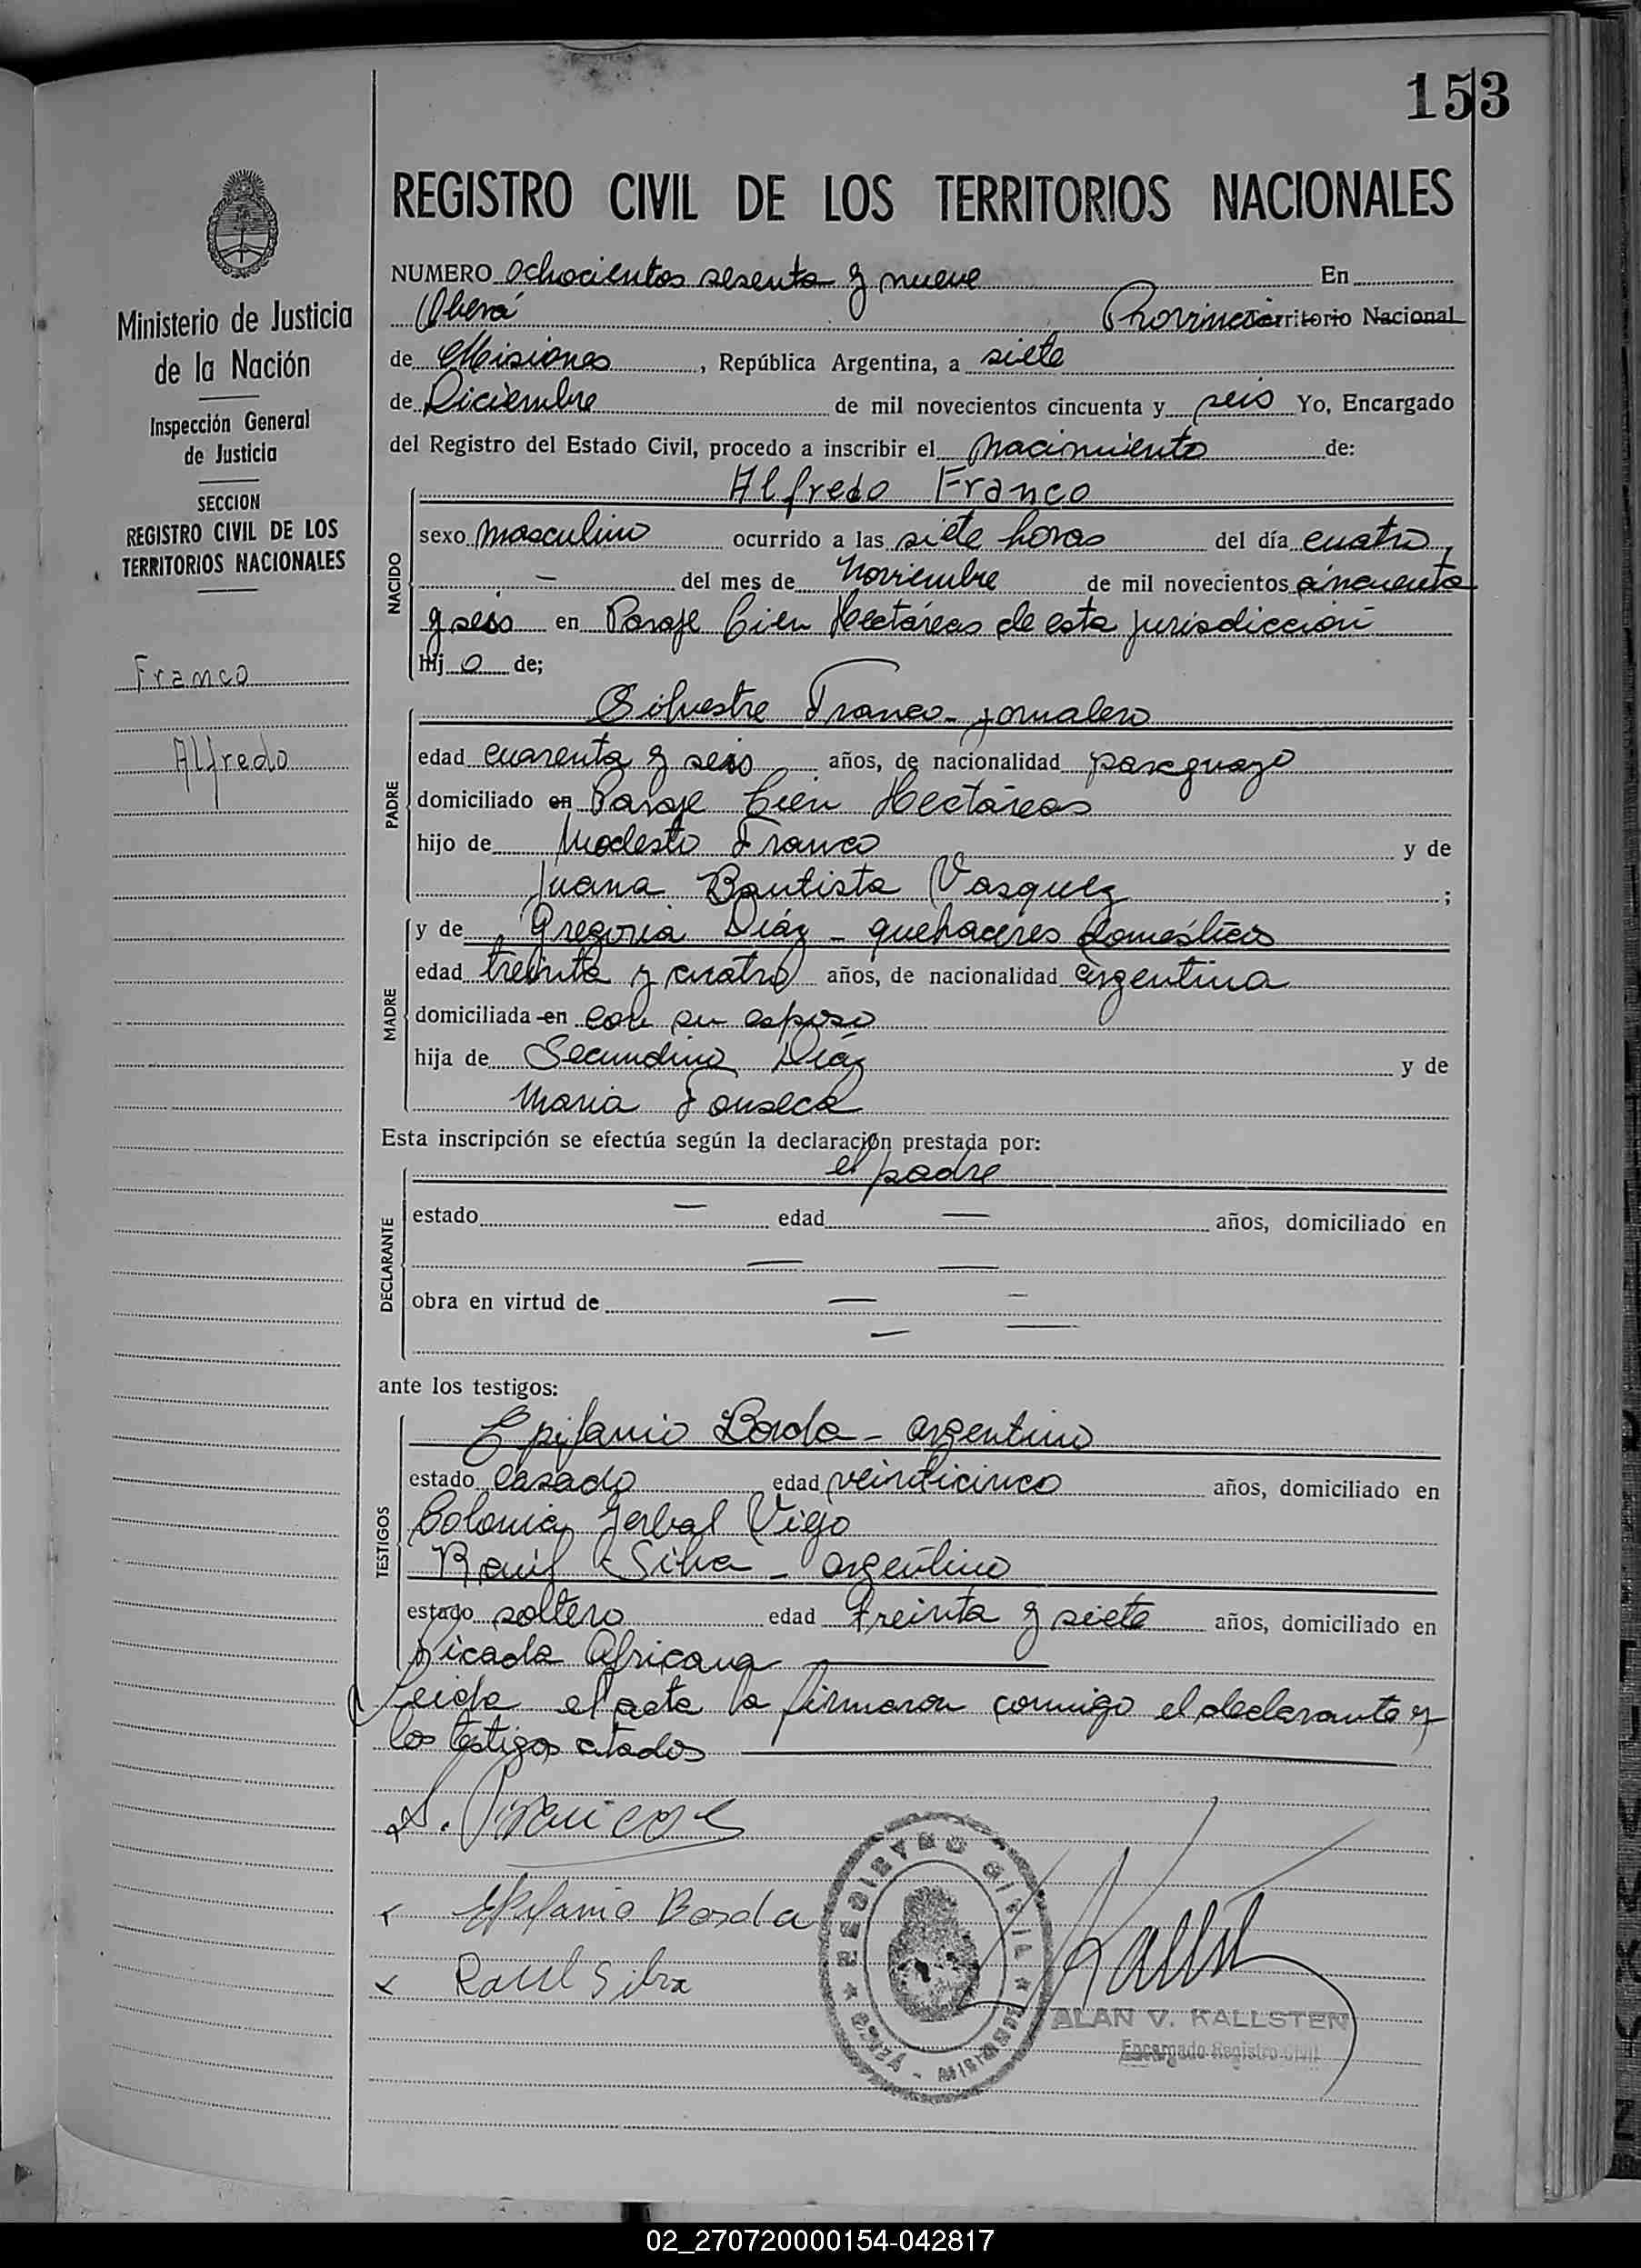 153
REGISTRO CIVIL DE LOS TERRITORIOS NACIONALES
Ministerio de Justicia
de la Nación
Inspección General
de Justicia
SECCION
REGISTRO CIVIL DE LOS
TERRITORIOS NACIONALES
Franco
Alfredo
NUMERO Ochocientos sesenta y nueve En
Oberá Provincia Territorio Nacional
de Misiones, República Argentina, a siete
de Diciembre de mil novecientos cincuenta y seis Yo, Encargado
del Registro del Estado Civil, procedo a inscribir el nacimiento de:
NACIDO
Alfredo Franco
sexo masculino ocurrido a las siete horas del día cuatro,
— del mes de noviembre de mil novecientos cincuenta
y seis en Paraje Cien Hectáreas de esta jurisdicción
hijo de;
PADRE
Silvestre Franco - jornalero
edad cuarenta y seis años, de nacionalidad paraguayo
domiciliado en Paraje Cien Hectáreas
hijo de Modesto Franco y de
Juana Bautista Vasquez ;
MADRE
y de Gregoria Diáz - quehaceres domésticos
edad treinta y cuatro años, de nacionalidad argentina
domiciliada en con su esposo
hija de Secundino Diáz y de
Maria Fonseca
Esta inscripción se efectúa según la declaración prestada por:
DECLARANTE
el padre
estado — edad — años, domiciliado en
— —
obra en virtud de — —
— —
ante los testigos:
TESTIGOS
Epifanio Borda - argentino
estado casado edad veinticinco años, domiciliado en
Colonia Yerbal Viejo
Raúl Silva - argentino
estado soltero edad treinta y siete años, domiciliado en
picada Africana
Leída el acta la firmaron conmigo el declarante y
los testigos citados
Epifanio Borda
Raul Silva
REGISTRO CIVIL
OBERÁ - MISIONES
ALAN V. KALLSTEN
Encargado Registro Civil
02_270720000154-042817